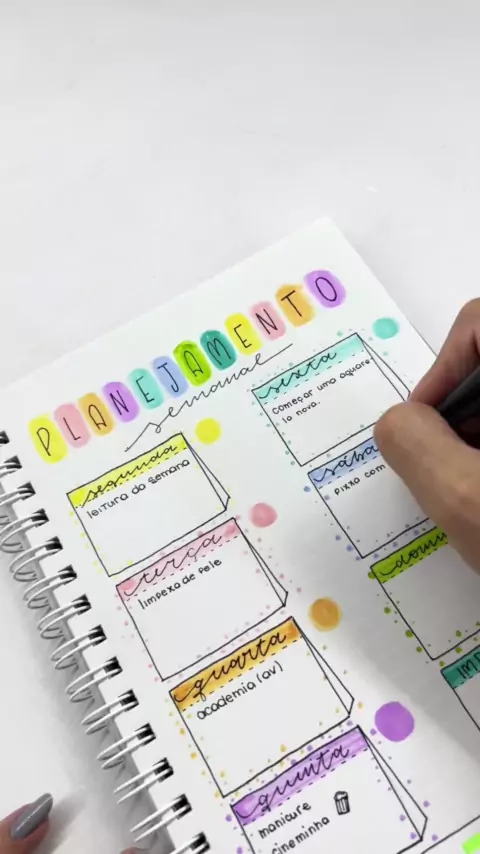 PLANEJAMENTO
semanal
segunda
leitura da semana
terça
limpeza de pele
quarta
academia (av)
quinta
manicure
cineminha
sexta
começar uma aquare-
la nova.
sába
pixxa com
domin
IMP